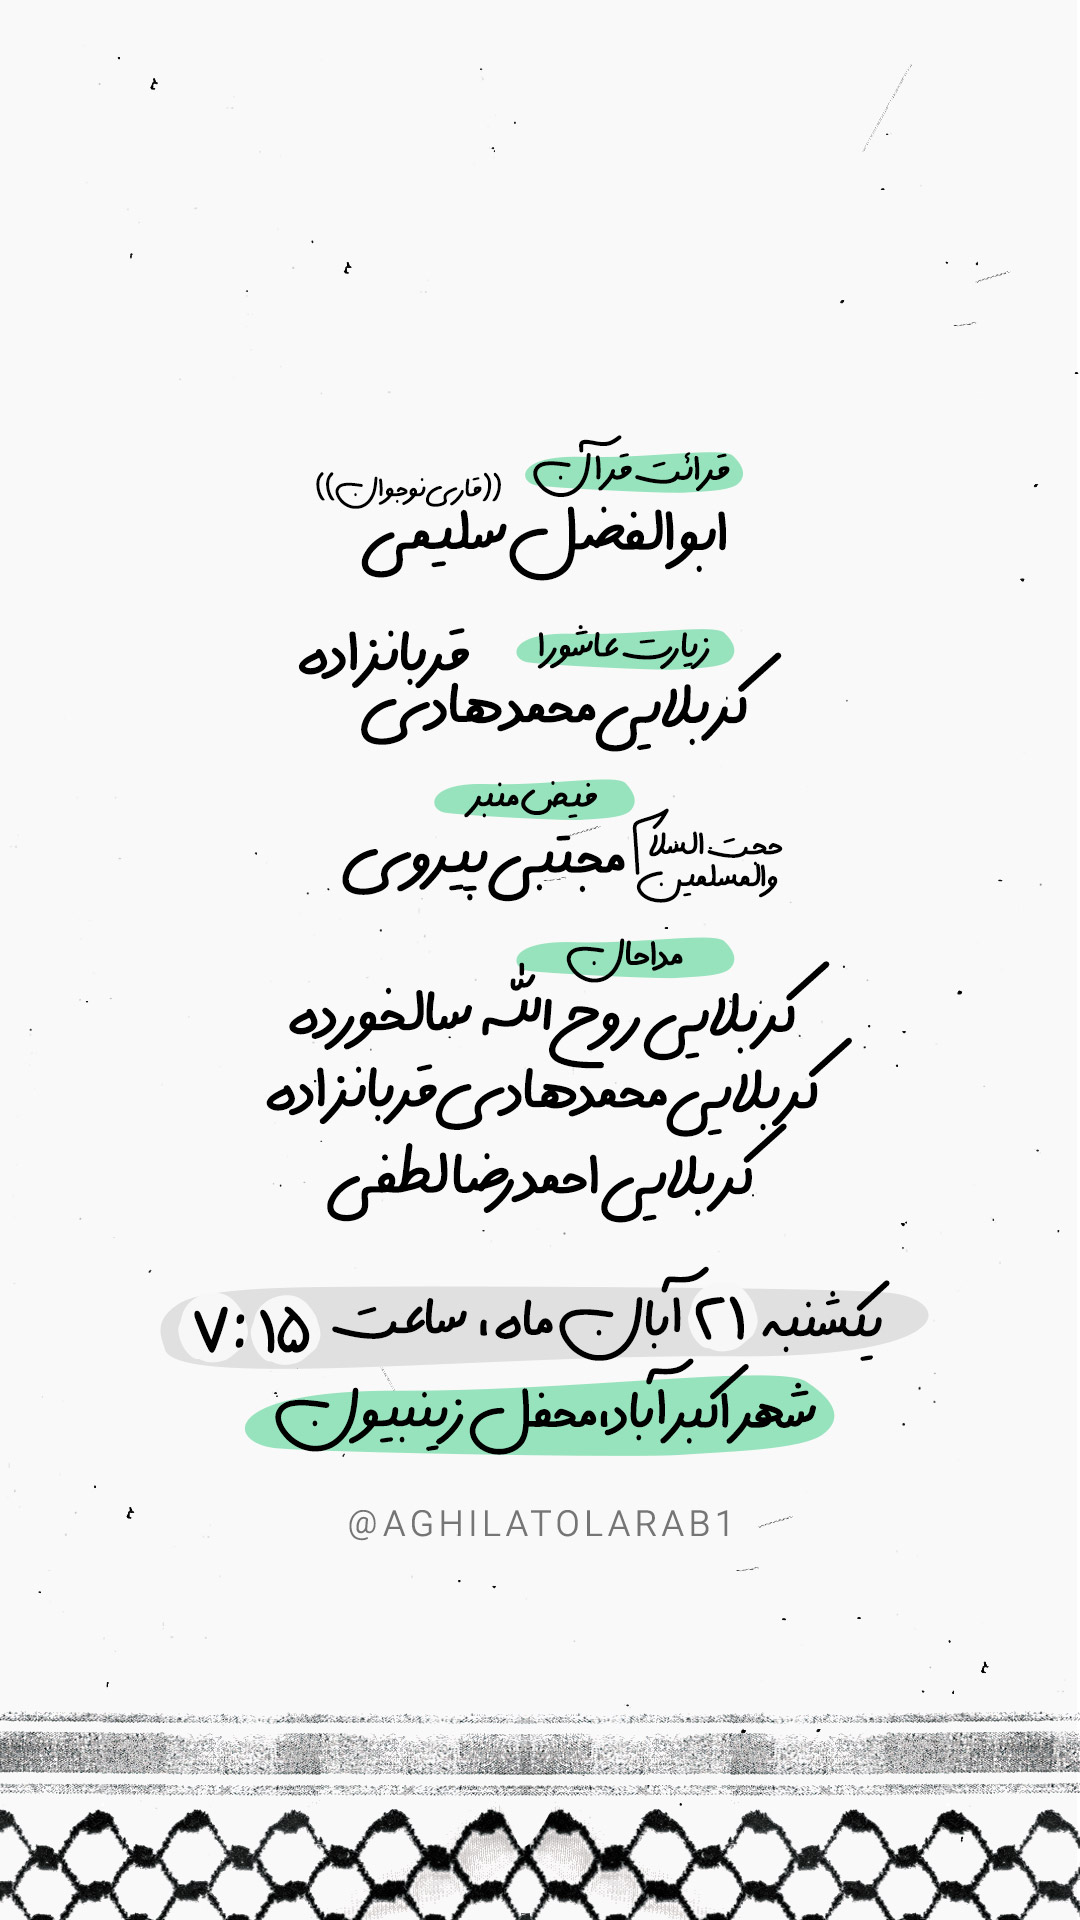 قرائت قرآن ((قاری نوجوان))
ابوالفضل سلیمی
زیارت عاشورا قربانزاده
کربلایی محمدهادی
فیض منبر
حجت السلام والمسلمین مجتبی پیروی
مداحان
کربلایی روح الله سالخورده
کربلایی محمدهادی قربانزاده
کربلایی احمدرضا لطفی
یکشنبه ۲۱ آبان ماه، ساعت ۷:۱۵
شهر اکبرآباد،محفل زینبیون
@AGHILATOLARAB1